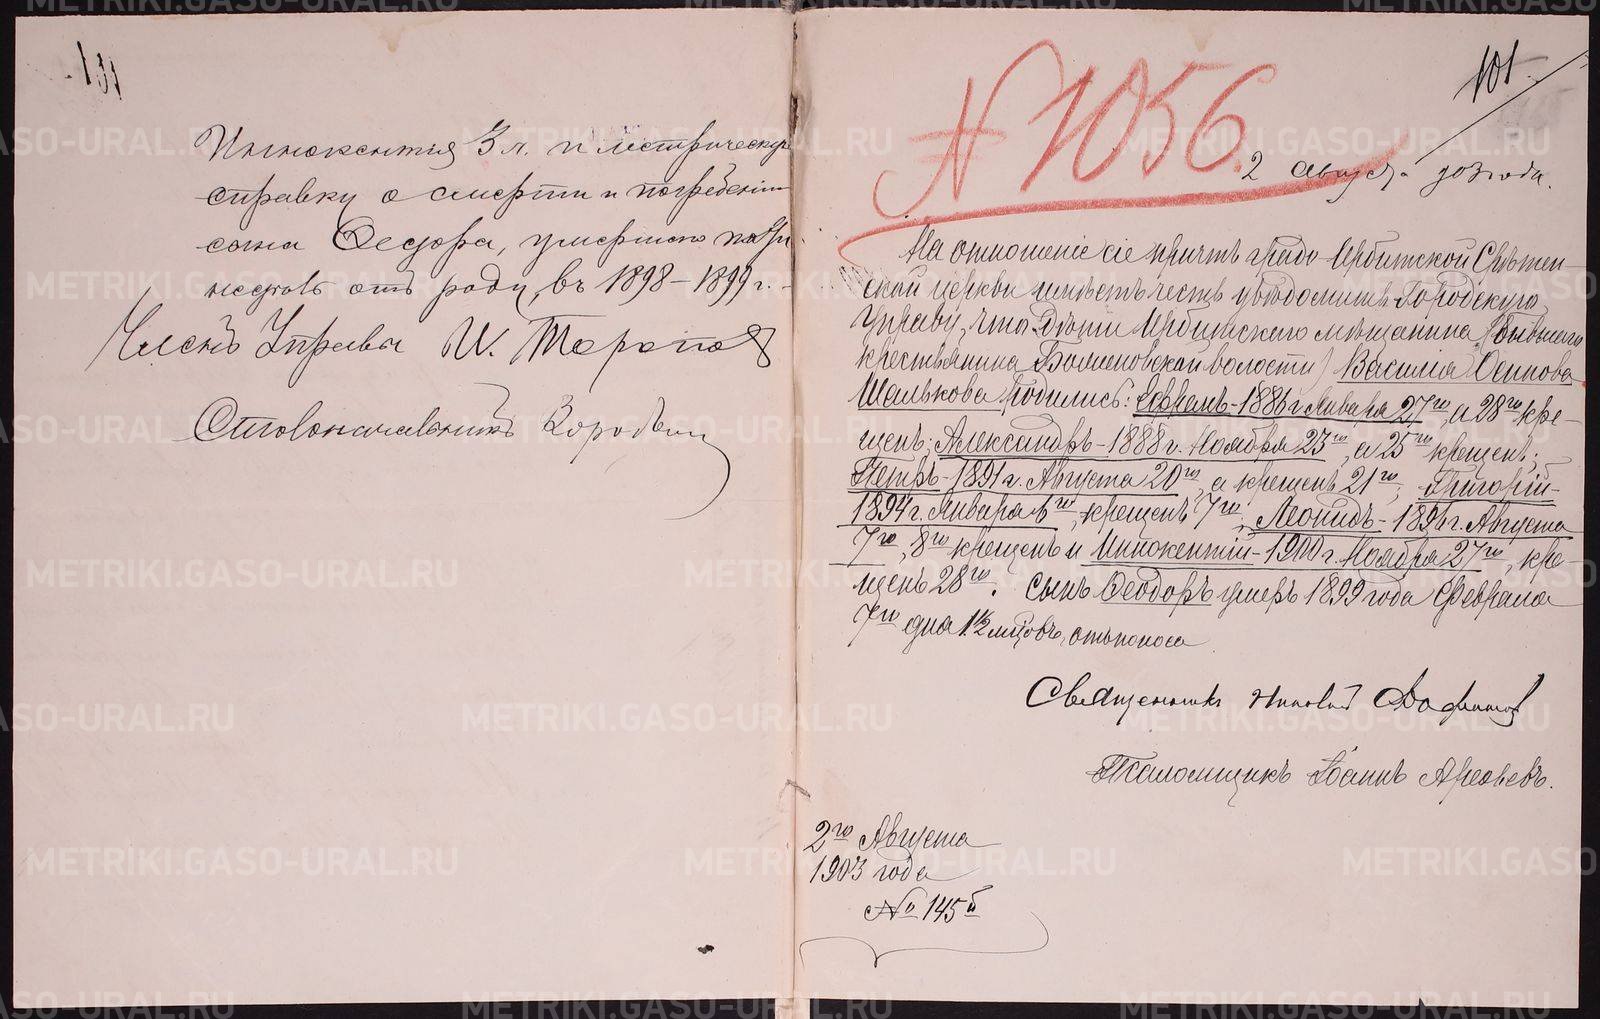 101
Иннокентия 3 л. и метрическую
справку о смерти и погребении
сына Федора, умершаго
недель отъ роду, въ 1898-1899 г.
Членъ Управы И. Торопов
Столоначальникъ
101
N 1056.
2 Августа 903 года.
На отношеніе сіе причтъ градо Ирбитской Срѣтен-
ской церкви имѣетъ честь увѣдомить Городскую
Управу, что дѣти Ирбитскаго мѣщанина (бывшаго
крестьянина волости) Василія Осипова
Шалькова родились: Ефремъ - 1886 г. Января 27го, а 28го кре-
щенъ; Александръ - 1888 г. Ноября 23го, а 25го крещенъ;
Петръ - 1891 г. Августа 20го, а крещенъ 21го; Григорій -
1894 г. Января 6го, крещенъ 7го; Леонидъ - 1896 г. Августа
7го, 8го крещенъ и Иннокентій - 1900 г. Ноября 27го, кре-
щенъ 28го. Сынъ Ѳеодоръ умеръ 1899 года Февраля
7го дня 1 1/2 мѣсяцовъ, отъ поноса.
Священникъ Николай
Псаломщикъ Іоаннъ Арефьевъ.
2го Августа
1903 года
№ 145й